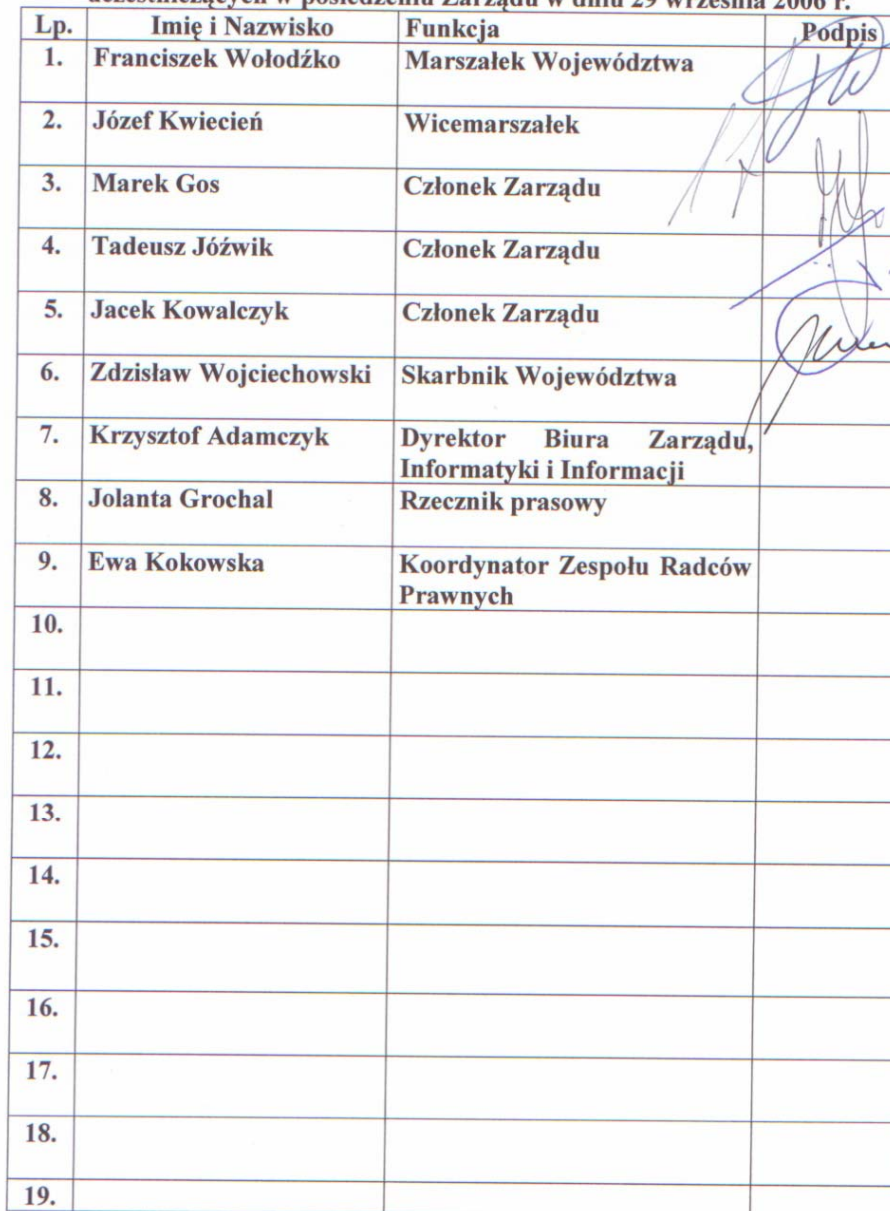 uczestniczących w posiedzeniu Zarządu w dniu 29 września 2006 r.
Lp. Imię i Nazwisko Funkcja Podpis
1. Franciszek Wołodźko Marszałek Województwa
2. Józef Kwiecień Wicemarszałek
3. Marek Gos Członek Zarządu
4. Tadeusz Jóźwik Członek Zarządu
5. Jacek Kowalczyk Członek Zarządu
6. Zdzisław Wojciechowski Skarbnik Województwa
7. Krzysztof Adamczyk Dyrektor Biura Zarządu,
Informatyki i Informacji
8. Jolanta Grochal Rzecznik prasowy
9. Ewa Kokowska Koordynator Zespołu Radców
Prawnych
10.
11.
12.
13.
14.
15.
16.
17.
18.
19.